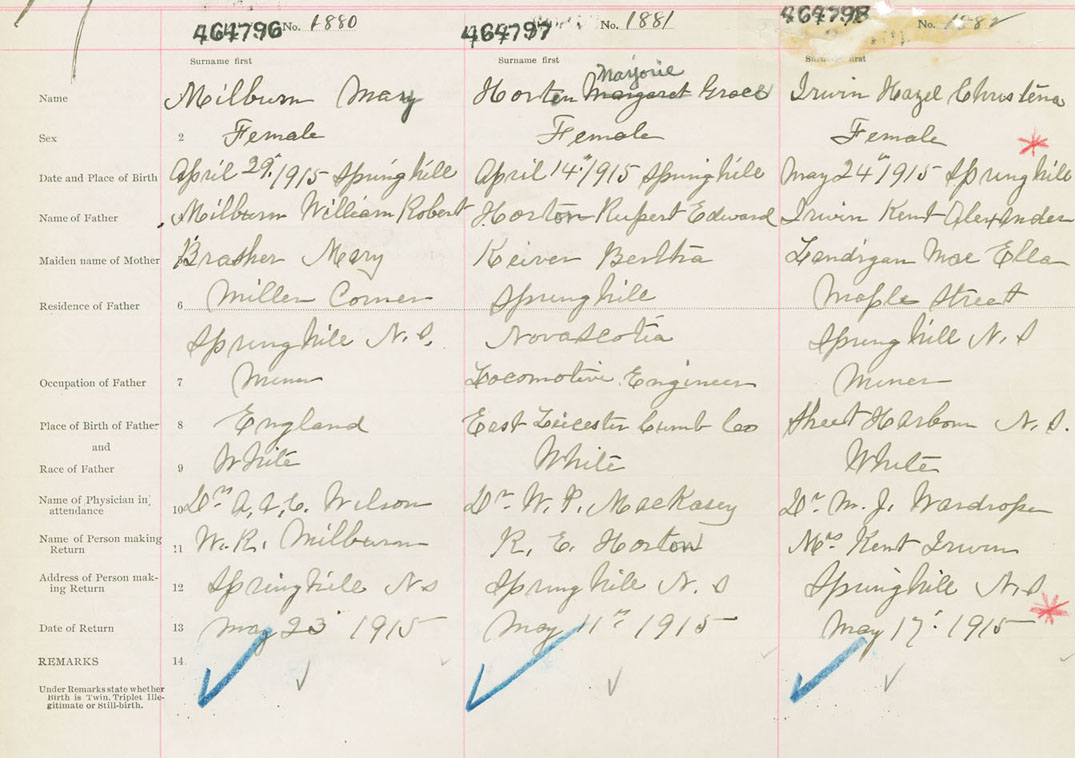 464796 No. 1880 464797 No. 1881 464798 No. 1882
Surname first Surname first Surname first
Marjorie
Name Milburn Mary Horton Margaret Grace Irwin Hazel Christena
Sex 2 Female Female Female
Date and Place of Birth April 29th 1915 Springhill April 14th 1915 Springhill May 24th 1915 Springhill
Name of Father Milburn William Robert Horton Rupert Edward Irwin Kent Alexander
Maiden name of Mother Brasher Mary Keiver Bertha Landrigan Mae Ella
Residence of Father 6 Miller Corner Springhill Maple Street
Springhill N.S. Nova Scotia Springhill N.S
Occupation of Father 7 Miner Locomotive Engineer Miner
Place of Birth of Father 8 England East Leicester Cumb Co Sheet Harbour N.S.
and
Race of Father 9 White White White
Name of Physician in attendance 10 Dr A.A.C. Wilson Dr W. P. MacKasey Dr M. J. Wardrope
Name of Person making Return 11 W. R. Milburn R. E. Horton Mrs Kent Irwin
Address of Person making Return 12 Springhill NS Springhill N.S Springhill N.S
Date of Return 13 May 23 1915 May 11th 1915 May 17th 1915
REMARKS 14.
Under Remarks state whether
Birth is Twin, Triplet Ille-
gitimate or Still-birth.